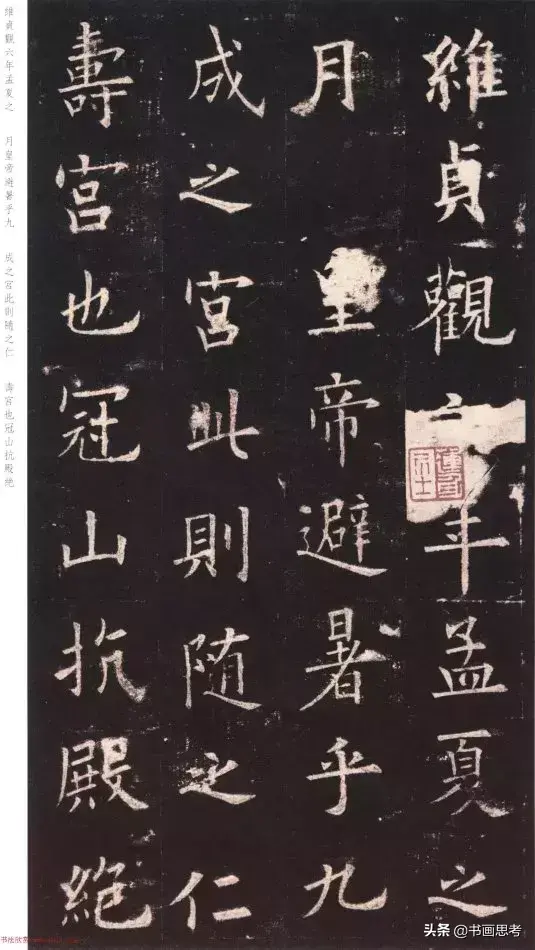 維貞觀六年孟夏之
月 皇帝避暑乎九
成之宮此則随之仁
壽宮也冠山抗殿絕
維貞觀六年孟夏之 月皇帝避暑乎九 成之宮此則隨之仁 壽宮也冠山抗殿絕
书法欣赏
头条 @书画思考